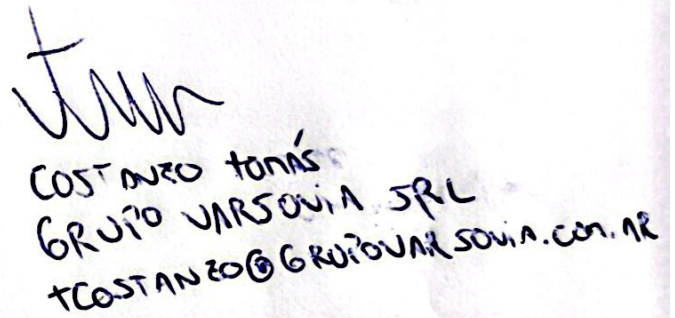 COSTANZO TOMÁS
GRUPO VARSOVIA SRL
TCOSTANZO@GRUPOVARSOVIA.COM.AR